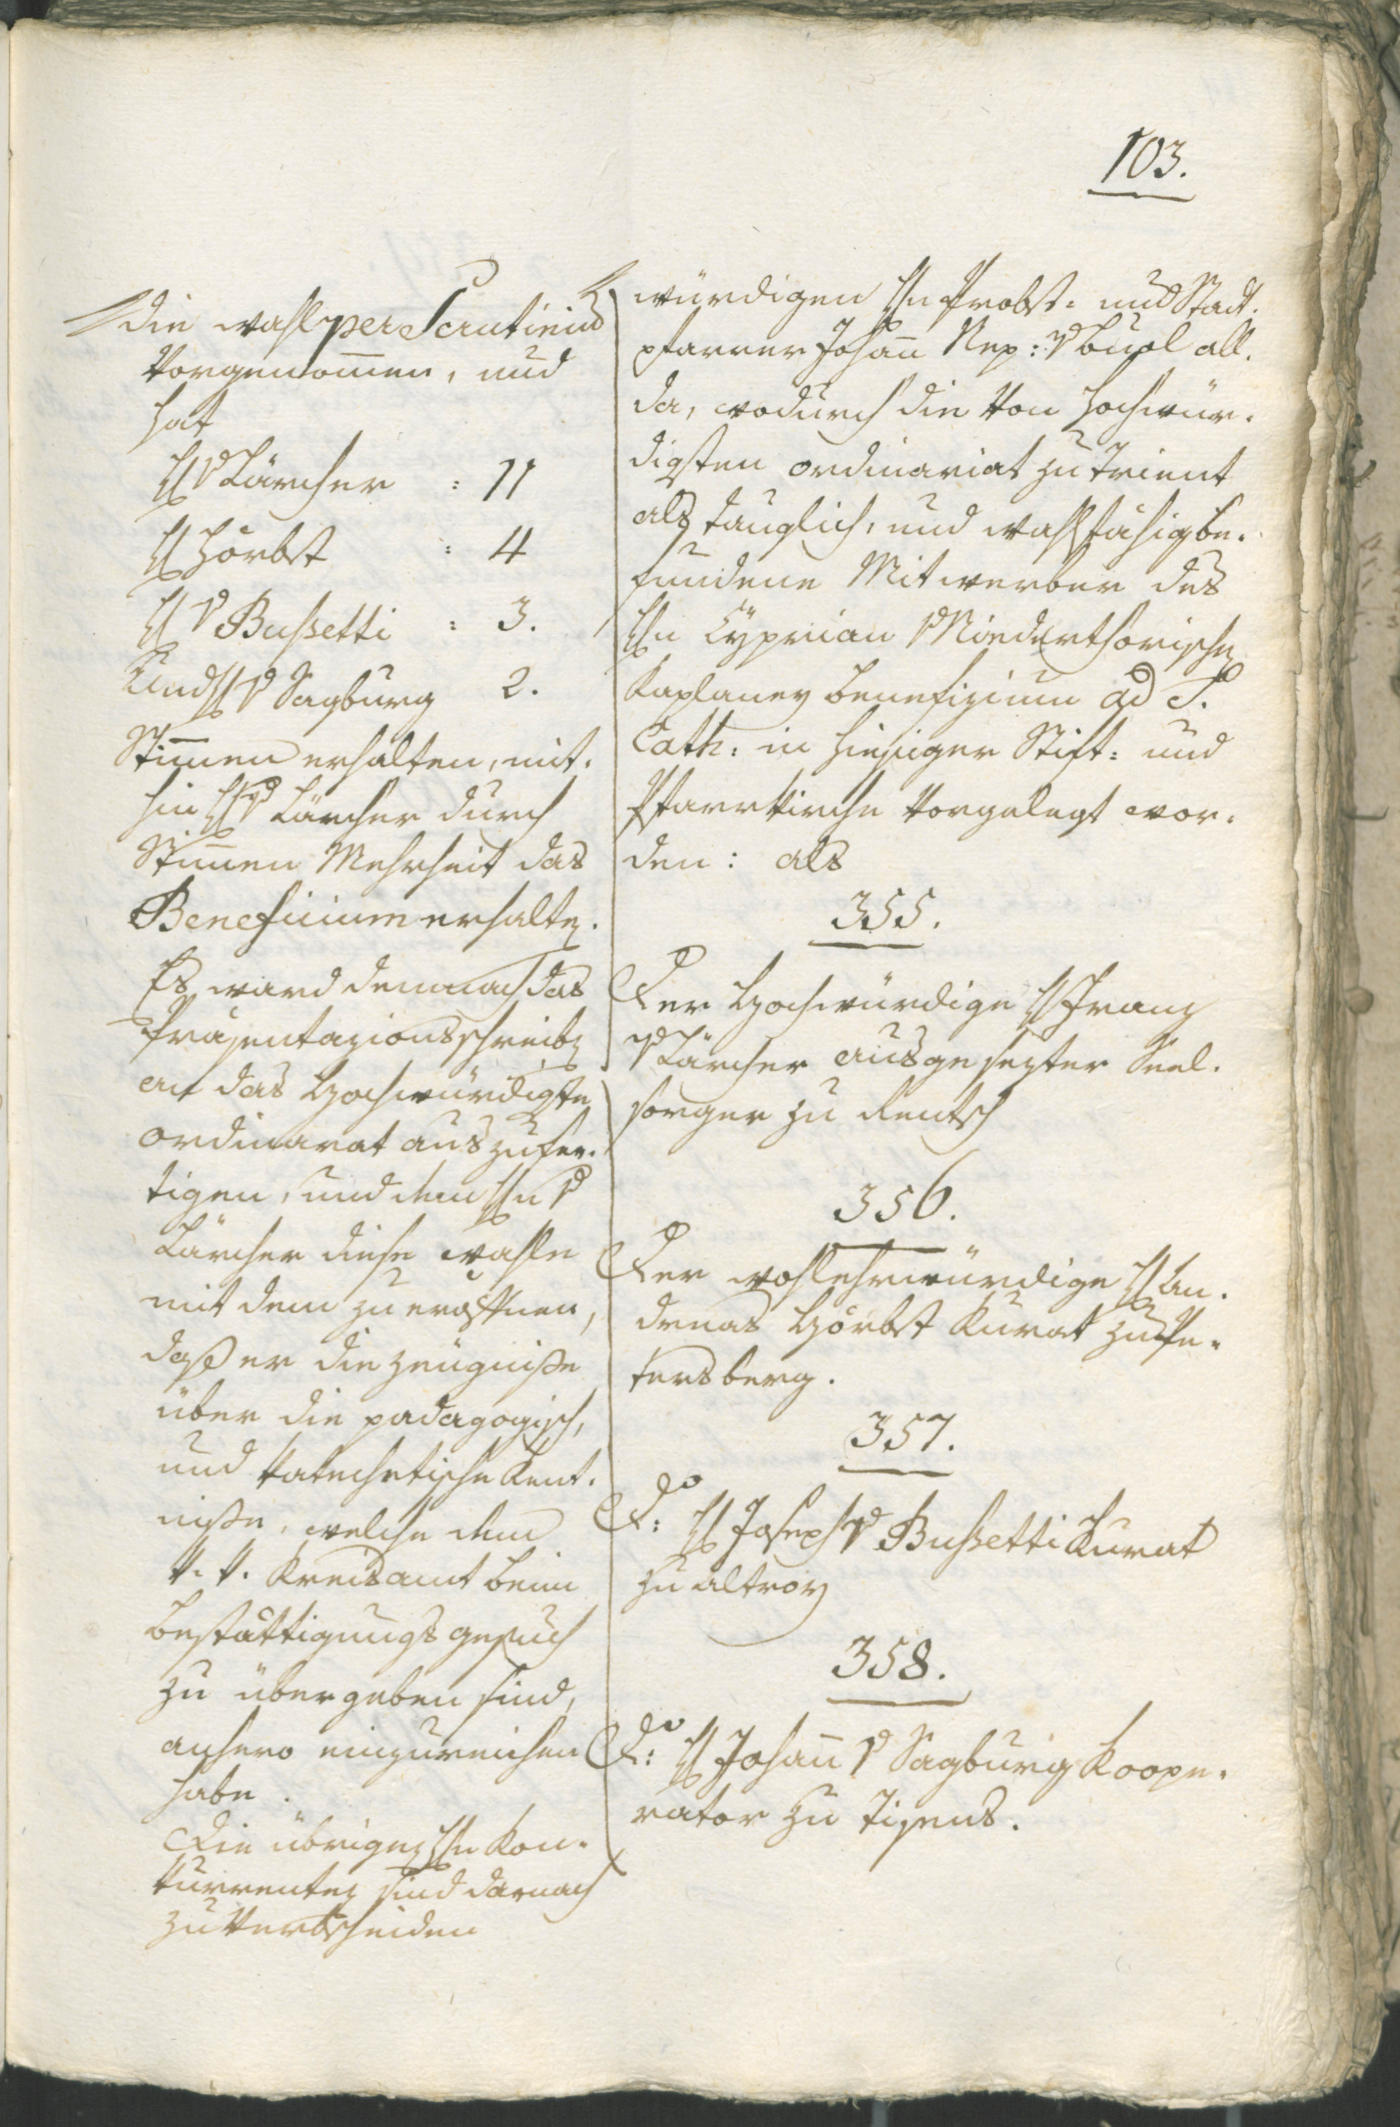 103.
die wahl per Scrutinium
Vorgenomen, und
hat
H v Lärcher : 11
H Hörbst : 4
H v Bußetti : 3.
Und H v Sagburg 2.
Stimen erhalten, mit-
hin H v Lärcher durch
Stimen Mehrheit das
Beneficium erhalten.
Es ward demnach das
Präsentazionsschreiben
an das Hochwürdigste
ordinariat auszufer-
tigen, und dem Hn v
Lärcher diese wahle
mit dem zu eröffnen,
daß er die zeugniße
über die padagogisch,
und katechetische Kent-
niße, welche dem
k. k. Kreisamt beim
bestättigungs gesuch
zu übergeben sind,
anhero einzureichen
habe.
Die übrigen Hn Kon-
kurrenten sind darnach
zu verbscheiden
würdigen Hn Probst- und Stadt-
pfarrer Johan Nep: v Buol all-
da, wodurch die von Hochwür-
digsten ordinariat zu Trient
als tauglich, und wahlfähig be-
fundene Mitwerber des
Hn Cyprian v Niederthorischen
Kaplaney benefizium ad S.
Cath: in hiesiger Stift- und
Pfarrkirche vorgelegt wor-
den: als
355.
Der Hochwürdige H Franz
v Lärcher ausgesezter Seel-
sorger zu Rentsch
356.
Der wohlehrwürdige H An-
dreas Hörbst Kurat zu Pe-
tersberg.
357.
Do: H Joseph v Bußetti Kurat
zu Altrey
358.
Do: H Johan v Sagburg Koope-
rator zu Tisens.